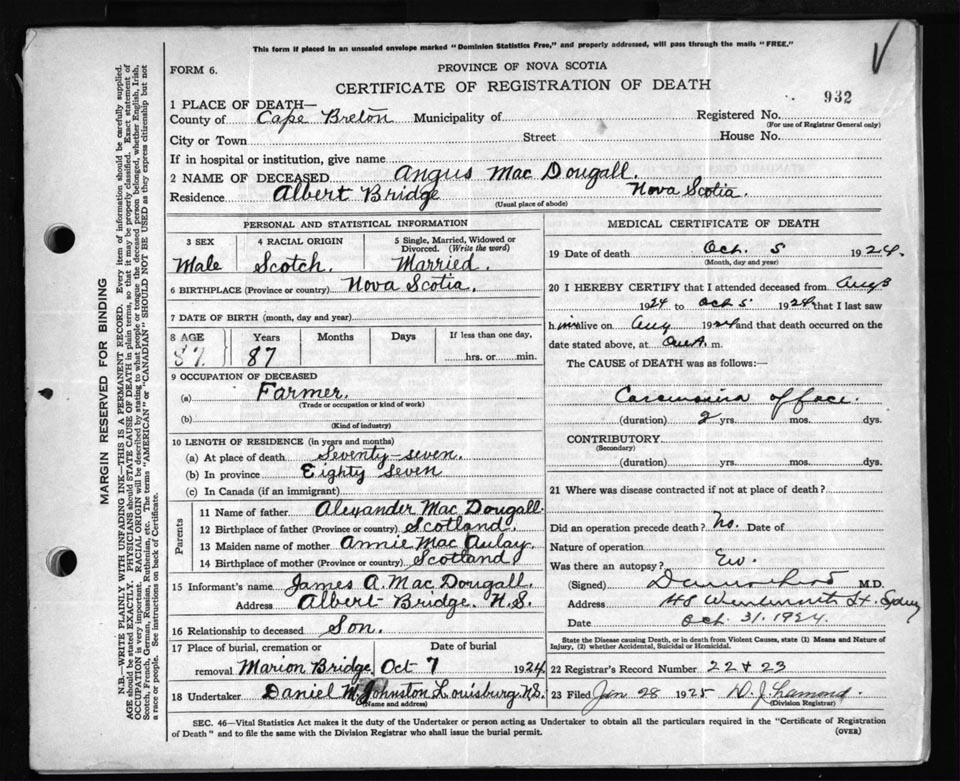 This form if placed in an unsealed envelope marked "Dominion Statistics Free," and properly addressed, will pass through the mails "FREE."
FORM 6.
PROVINCE OF NOVA SCOTIA
CERTIFICATE OF REGISTRATION OF DEATH
932
1 PLACE OF DEATH—
County of Cape Breton Municipality of Registered No.
(For use of Registrar General only)
City or Town Street House No.
If in hospital or institution, give name
2 NAME OF DECEASED Angus Mac Dougall.
Residence Albert Bridge Nova Scotia.
(Usual place of abode)
PERSONAL AND STATISTICAL INFORMATION
3 SEX 4 RACIAL ORIGIN 5 Single, Married, Widowed or Divorced. (Write the word)
Male Scotch. Married.
6 BIRTHPLACE (Province or country) Nova Scotia.
7 DATE OF BIRTH (month, day and year)
8 AGE Years Months Days If less than one day,
87. 87 hrs. or min.
9 OCCUPATION OF DECEASED
(a) Farmer.
(Trade or occupation or kind of work)
(b)
(Kind of industry)
10 LENGTH OF RESIDENCE (in years and months)
(a) At place of death Seventy-seven.
(b) In province Eighty seven
(c) In Canada (if an immigrant)
Parents
11 Name of father Alexander Mac Dougall.
12 Birthplace of father (Province or country) Scotland.
13 Maiden name of mother Annie Mac Aulay.
14 Birthplace of mother (Province or country) Scotland
15 Informant's name James A. Mac Dougall.
Address Albert Bridge. N.S.
16 Relationship to deceased Son.
17 Place of burial, cremation or Date of burial
removal Marion Bridge Oct 7 1924
18 Undertaker Daniel M. Johnston Louisburg. N.S.
(Name and address)
MEDICAL CERTIFICATE OF DEATH
19 Date of death Oct. 5 1924.
(Month, day and year)
20 I HEREBY CERTIFY that I attended deceased from Aug 3
1924 to Oct 5 1924 that I last saw
h im alive on Aug 1924 and that death occurred on
date stated above, at m.
The CAUSE OF DEATH was as follows:—
Carcinoma of face.
(duration) 2 yrs. mos. dys.
CONTRIBUTORY
(Secondary)
(duration) yrs. mos. dys.
21 Where was disease contracted if not at place of death?
Did an operation precede death? No. Date of
Nature of operation
Was there an autopsy?
(Signed) M.D.
Address 48 Wentworth St. Sydney
Date Oct. 31. 1924.
State the Disease causing Death, or in death from Violent Causes, state (1) Means and Nature of Injury, (2) whether Accidental, Suicidal or Homicidal.
22 Registrar's Record Number 22 & 23
23 Filed Jan 28 1925 D. J. Lamond.
(Division Registrar)
SEC. 46—Vital Statistics Act makes it the duty of the Undertaker or person acting as Undertaker to obtain all the particulars required in the "Certificate of Registration
of Death" and to file the same with the Division Registrar who shall issue the burial permit.
(OVER)
MARGIN RESERVED FOR BINDING
N.B.—WRITE PLAINLY WITH UNFADING INK—THIS IS A PERMANENT RECORD. Every item of information should be carefully supplied.
AGE should be stated EXACTLY. PHYSICIANS should STATE CAUSE OF DEATH in plain terms, so that it may be properly classified. Exact statement of
OCCUPATION is very important. RACIAL ORIGIN will be described by stating to what people or tongue the deceased person belonged, whether English, Irish,
Scotch, French, German, Russian, Ruthenian, etc. The terms "AMERICAN" or "CANADIAN" SHOULD NOT BE USED as they express citizenship but not
a race or people. See instructions on back of Certificate.